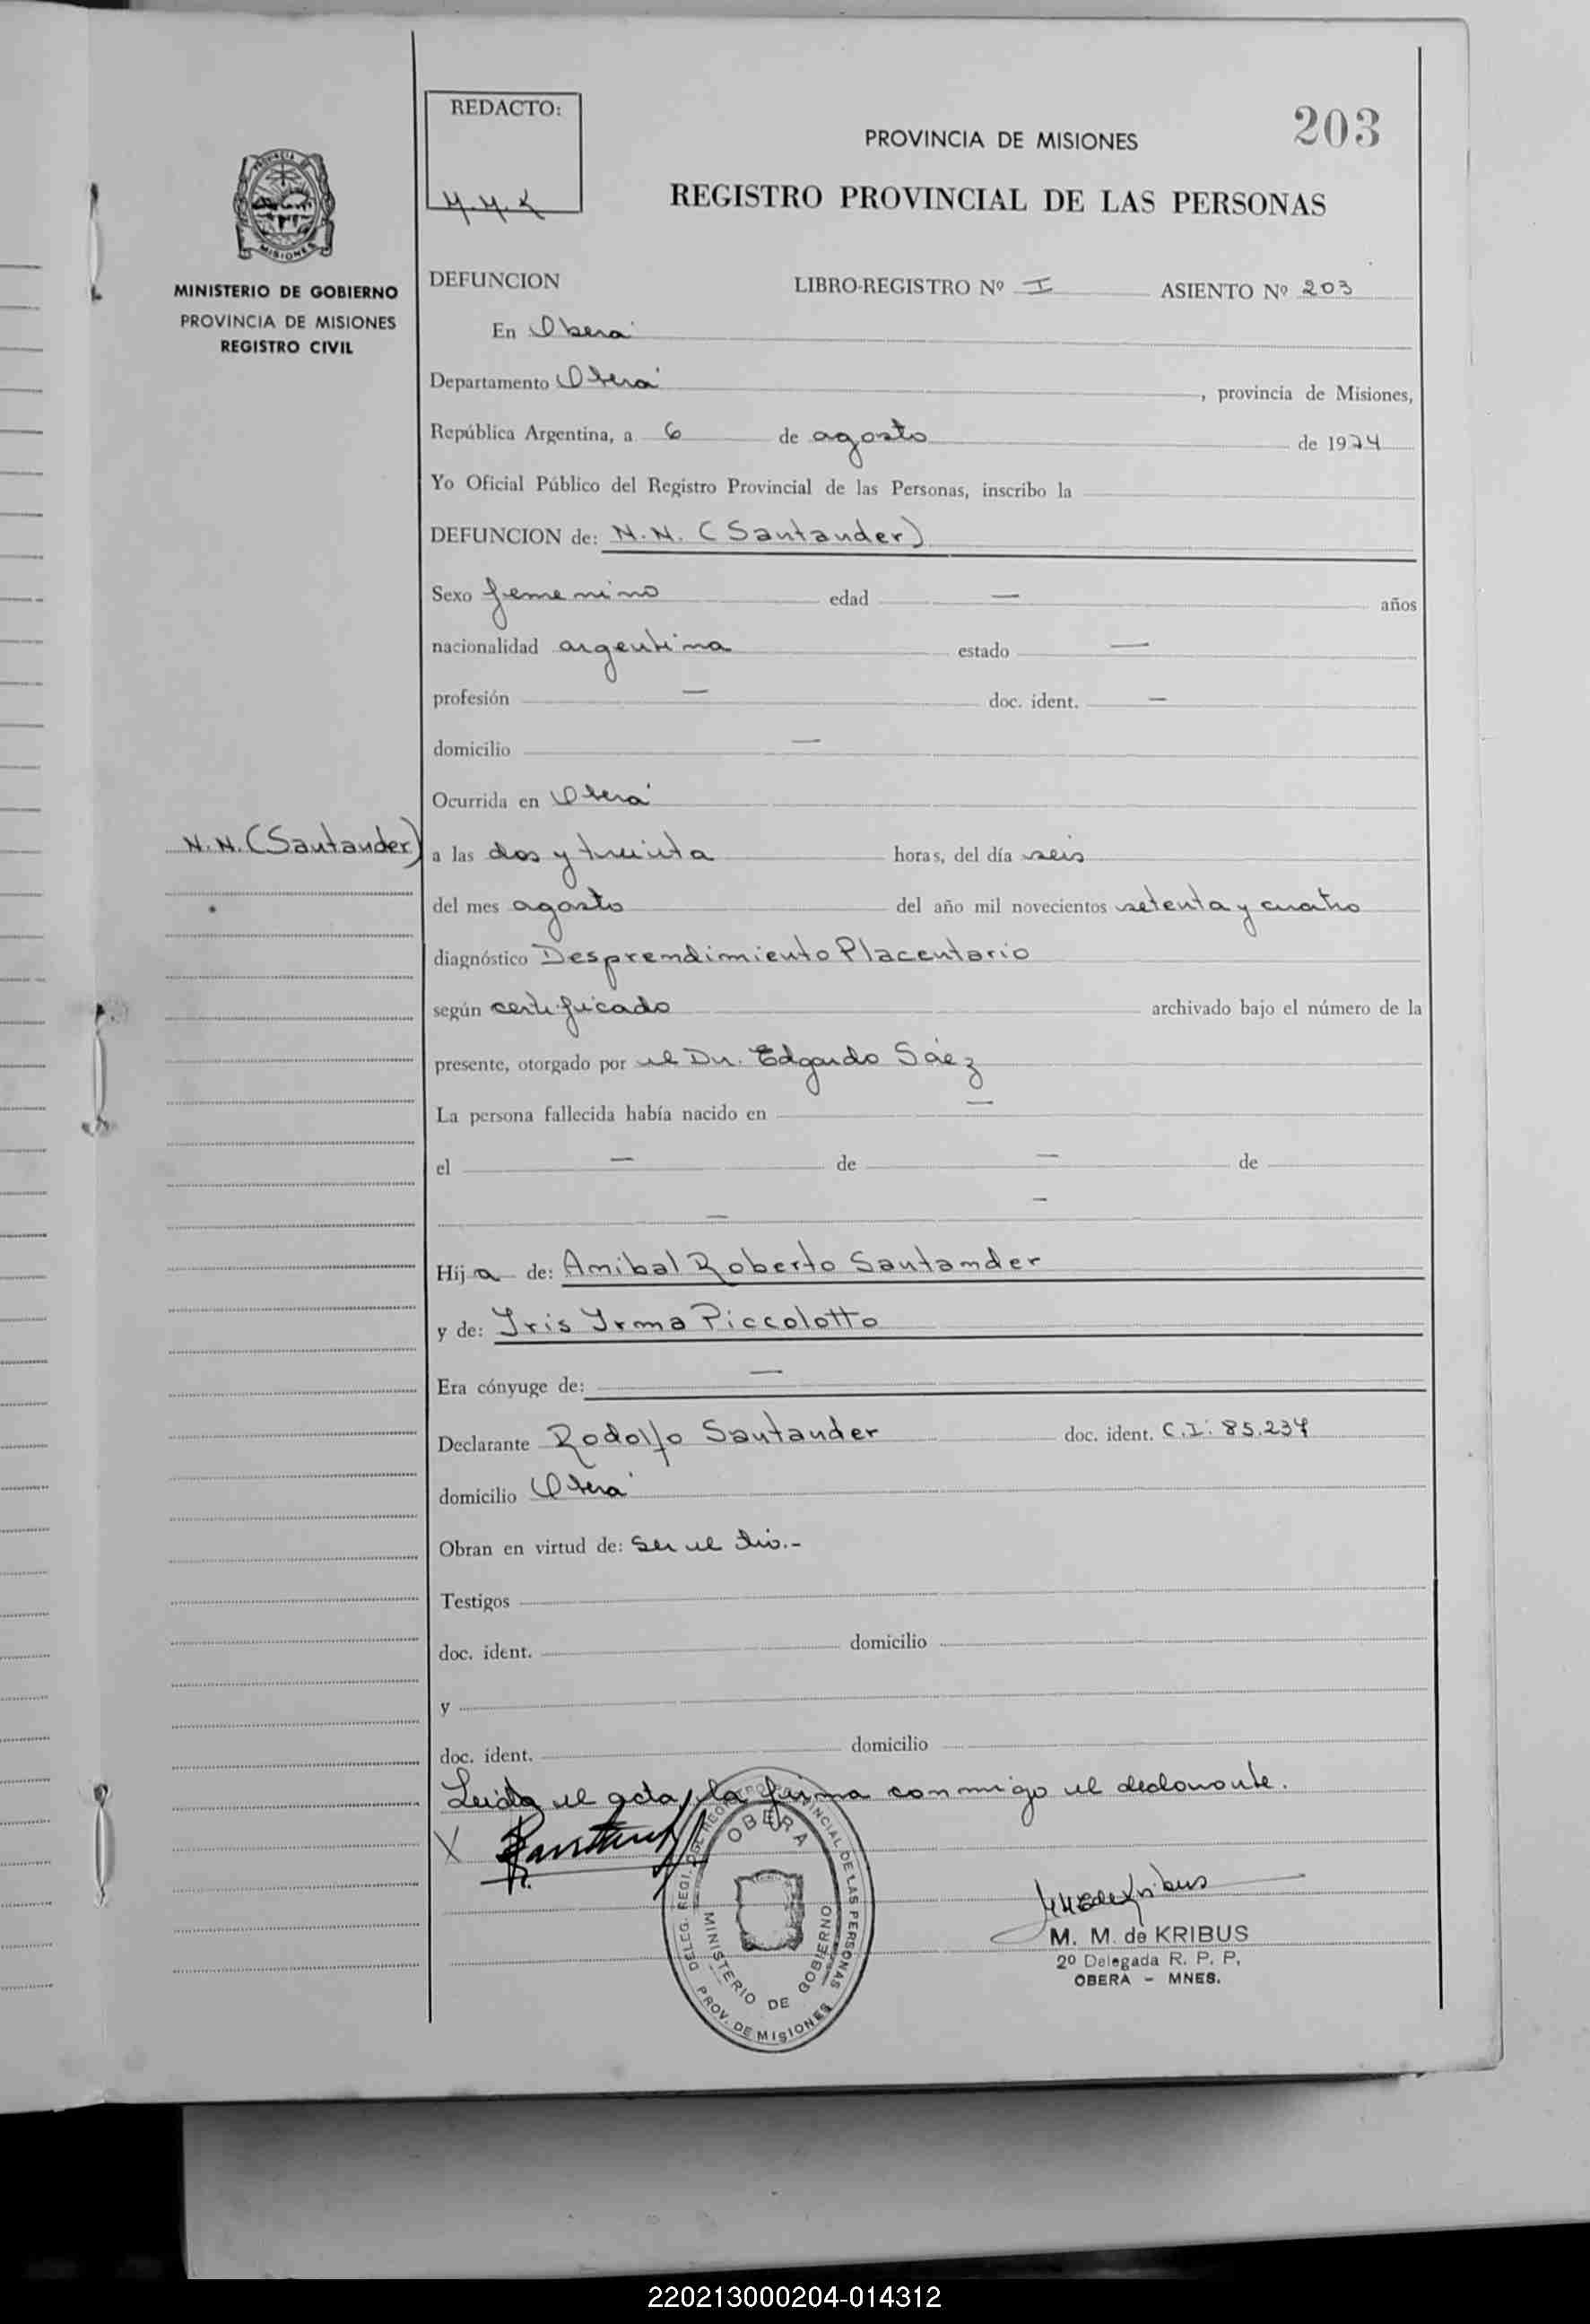 REDACTO:
203
PROVINCIA DE MISIONES
M.M.K
REGISTRO PROVINCIAL DE LAS PERSONAS
PROVINCIA DE
MISIONES
MINISTERIO DE GOBIERNO
PROVINCIA DE MISIONES
REGISTRO CIVIL
DEFUNCION LIBRO-REGISTRO Nº I ASIENTO Nº 203
En Oberá
Departamento Oberá, provincia de Misiones,
República Argentina, a 6 de agosto de 1974
Yo Oficial Público del Registro Provincial de las Personas, inscribo la
DEFUNCION de: N.N. (Santander)
Sexo femenino edad — años
nacionalidad argentina estado —
profesión — doc. ident. —
domicilio —
Ocurrida en Oberá
N.N. (Santander)
a las dos y treinta horas, del día seis
del mes agosto del año mil novecientos setenta y cuatro
diagnóstico Desprendimiento Placentario
según certificado archivado bajo el número de la
presente, otorgado por el Dr. Edgardo Sáez
La persona fallecida había nacido en —
el — de — de
— —
Hija de: Anibal Roberto Santander
y de: Iris Irma Piccolotto
Era cónyuge de: —
Declarante Rodolfo Santander doc. ident. C.I: 85.237
domicilio Oberá
Obran en virtud de: Ser el tío.-
Testigos
doc. ident. domicilio
y
doc. ident. domicilio
Leida el acta, la firma conmigo el declarante.
X
DELEG. REGI. DEL REGISTRO PROVINCIAL DE LAS PERSONAS
OBERA
MINISTERIO DE GOBIERNO
PROV. DE MISIONES
M. M. de KRIBUS
2º Delegada R. P. P.
OBERA - MNES.
220213000204-014312